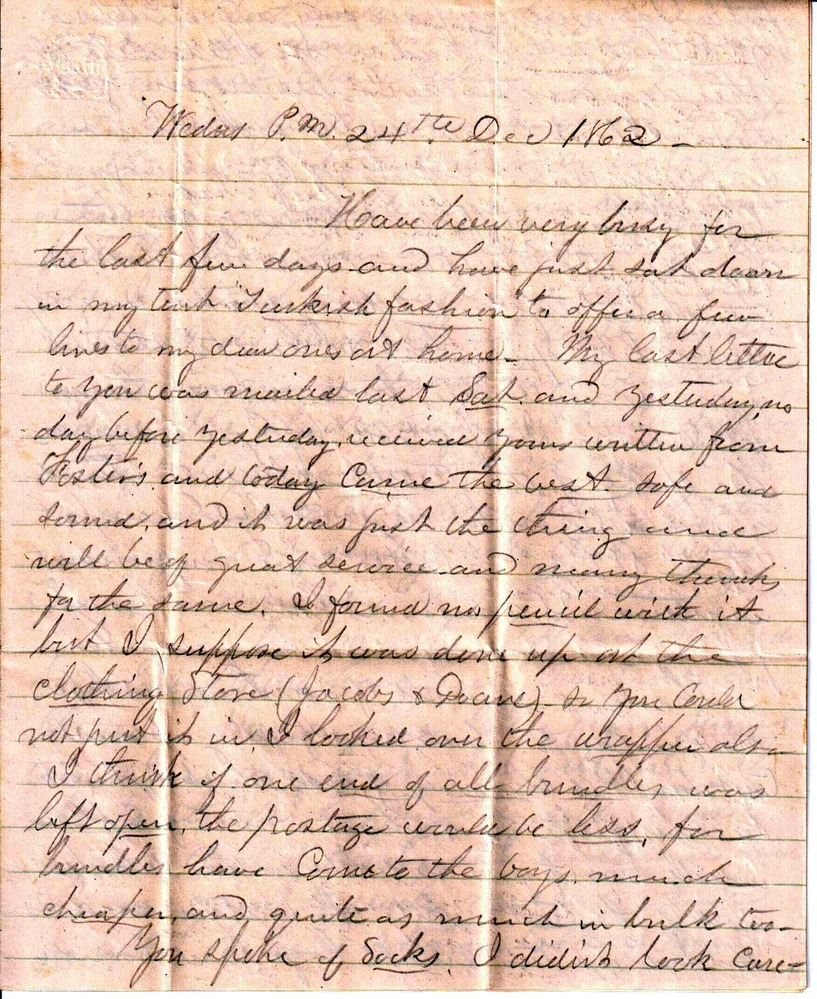 Wedns P.M. 24th Dec 1862 -
Have been very busy for
the last few days and have just sat down
in my tent "Turkish fashion" to offer a few
lines to my dear ones at home - My last letter
to you was mailed last Sat. and yesterday, no
day before yesterday, received yours written from
Foster's and today Came the vest. safe and
sound, and it was just the thing and
will be of great service and many thanks
for the same. I found no pencil with it
but I suppose it was done up at the
clothing Store (Jacobs & Deane) so you Could
not put it in I looked over the wrapper also
I think if one end of all bundles was
left open, the postage would be less, for
bundles have Come to the boys much
cheaper, and quite as much in bulk too -
You spoke of Socks. I didn't look Care-